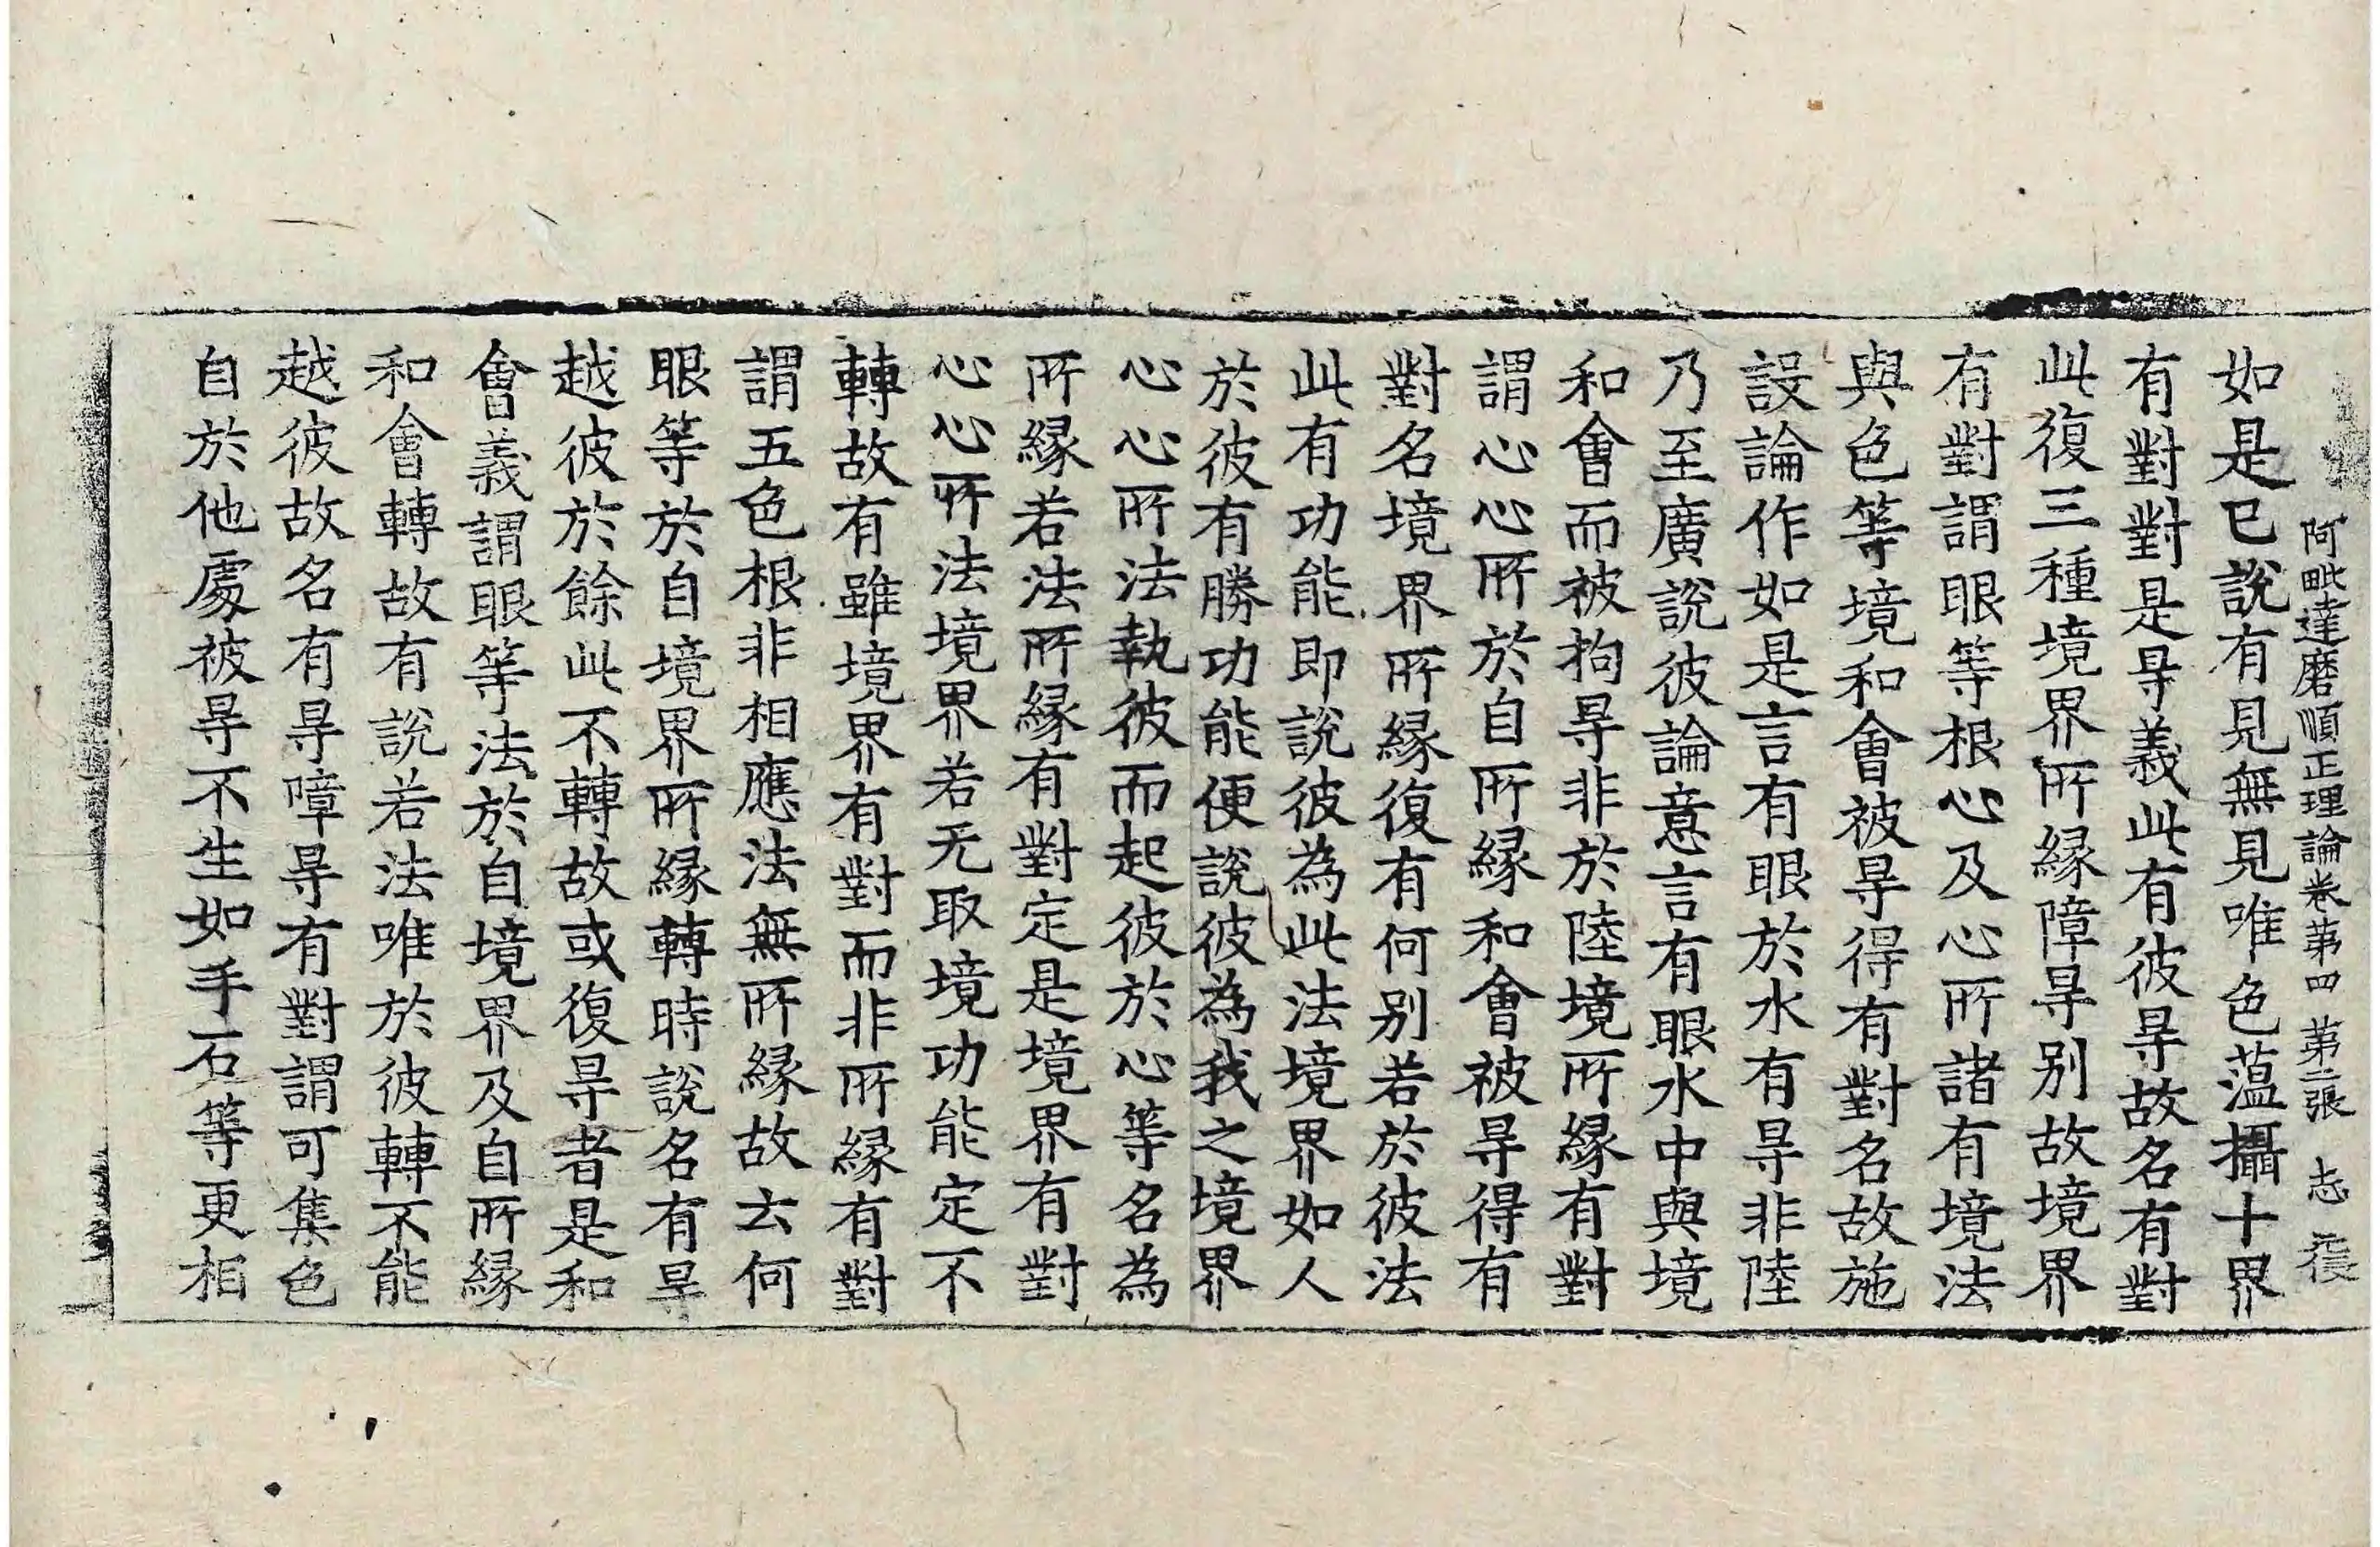 阿毗達磨順正理論卷第四 第二張 志
如是已說有見無見唯色薀攝十界
有對對是㝵義此有彼㝵故名有對
此復三種境界所緣障㝵别故境界
有對謂眼等根心及心所諸有境法
與色等境和會被㝵得有對名故施
設論作如是言有眼於水有㝵非陸
乃至廣說彼論意言有眼水中與境
和會而被拘㝵非於陸境所緣有對
謂心心所於自所緣和會被㝵得有
對名境界所緣復有何别若於彼法
此有功能即說彼為此法境界如人
於彼有勝功能便說彼為我之境界
心心所法執彼而起彼於心等名為
所緣若法所緣有對定是境界有對
心心所法境界若无取境功能定不
轉故有雖境界有對而非所緣有對
謂五色根非相應法無所緣故云何
眼等於自境界所緣轉時說名有㝵
越彼於餘此不轉故或復㝵者是和
會義謂眼等法於自境界及自所緣
和會轉故有說若法唯於彼轉不能
越彼故名有㝵嶂㝵有對謂可集色
自於他處被㝵不生如手石等更相